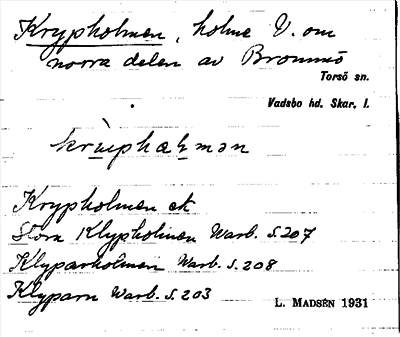 Krypholmen, holme V. om
norra delen av Brommö
Torsö sn.
Vadsbo hd. Skar. l.
Krypholmen ek
Stora Klypholmen Warb. S. 207
Klyparholmen Warb. S. 208
Klyparn Warb. S. 203
L. MADSÉN 1931